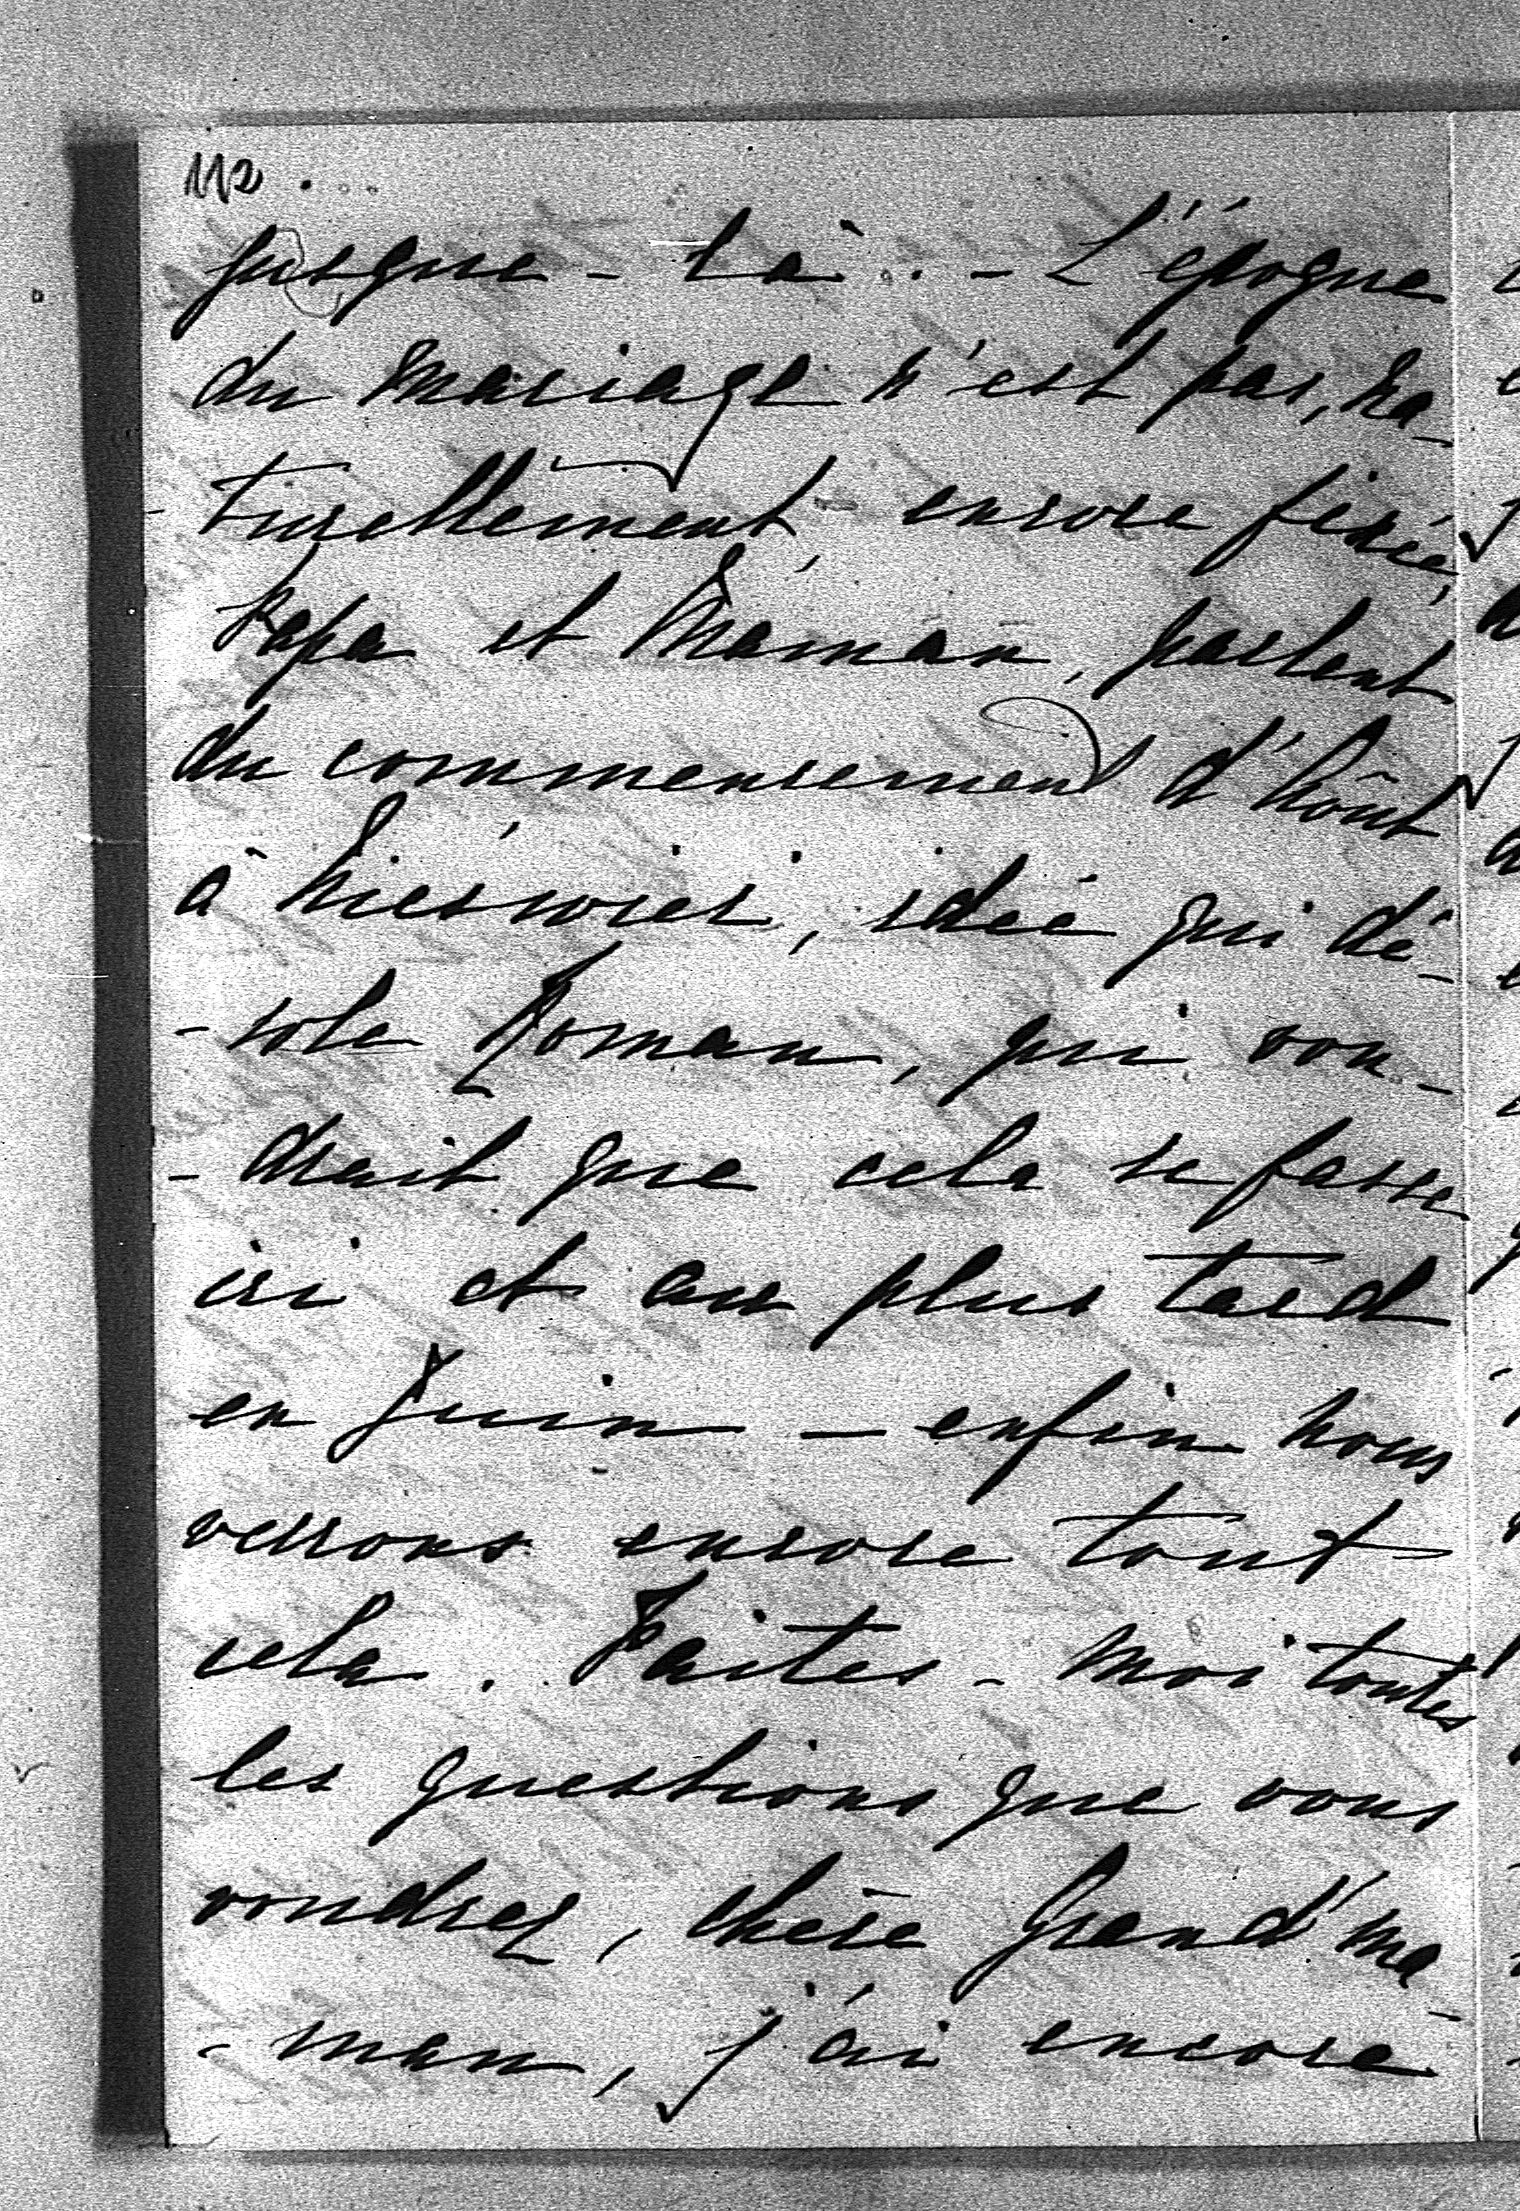 112
jusque-là. - L'époque
du mariage n'est pas, na-
-turellement, encore fixée,
Papa et Maman, parlent
du commencement d'Août
à Niesvież, idée qui dé-
-sole Roman, qui vou-
-drait que cela se fasse
ici et au plus tard
en Juin — enfin nous
verrons encore tout
cela. Faites-moi toutes
les questions que vous
voudrez, chère Grand'ma-
-man, j'ai encore